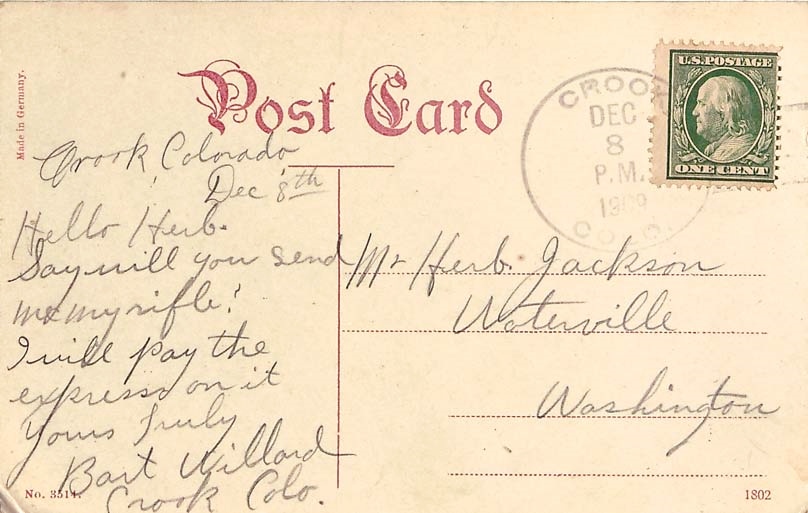 Made in Germany.
Post Card
U.S. POSTAGE
ONE CENT
CROOK
DEC
8
P.M.
1909
COLO.
Crook Colorado
Dec 8th
Hello Herb.
Say will you send
me my rifle?
I will pay the
express on it
Yours Truly
Bart Willard
Crook Colo.
Mr Herb. Jackson
Waterville
Washington
No. 3514.
1802